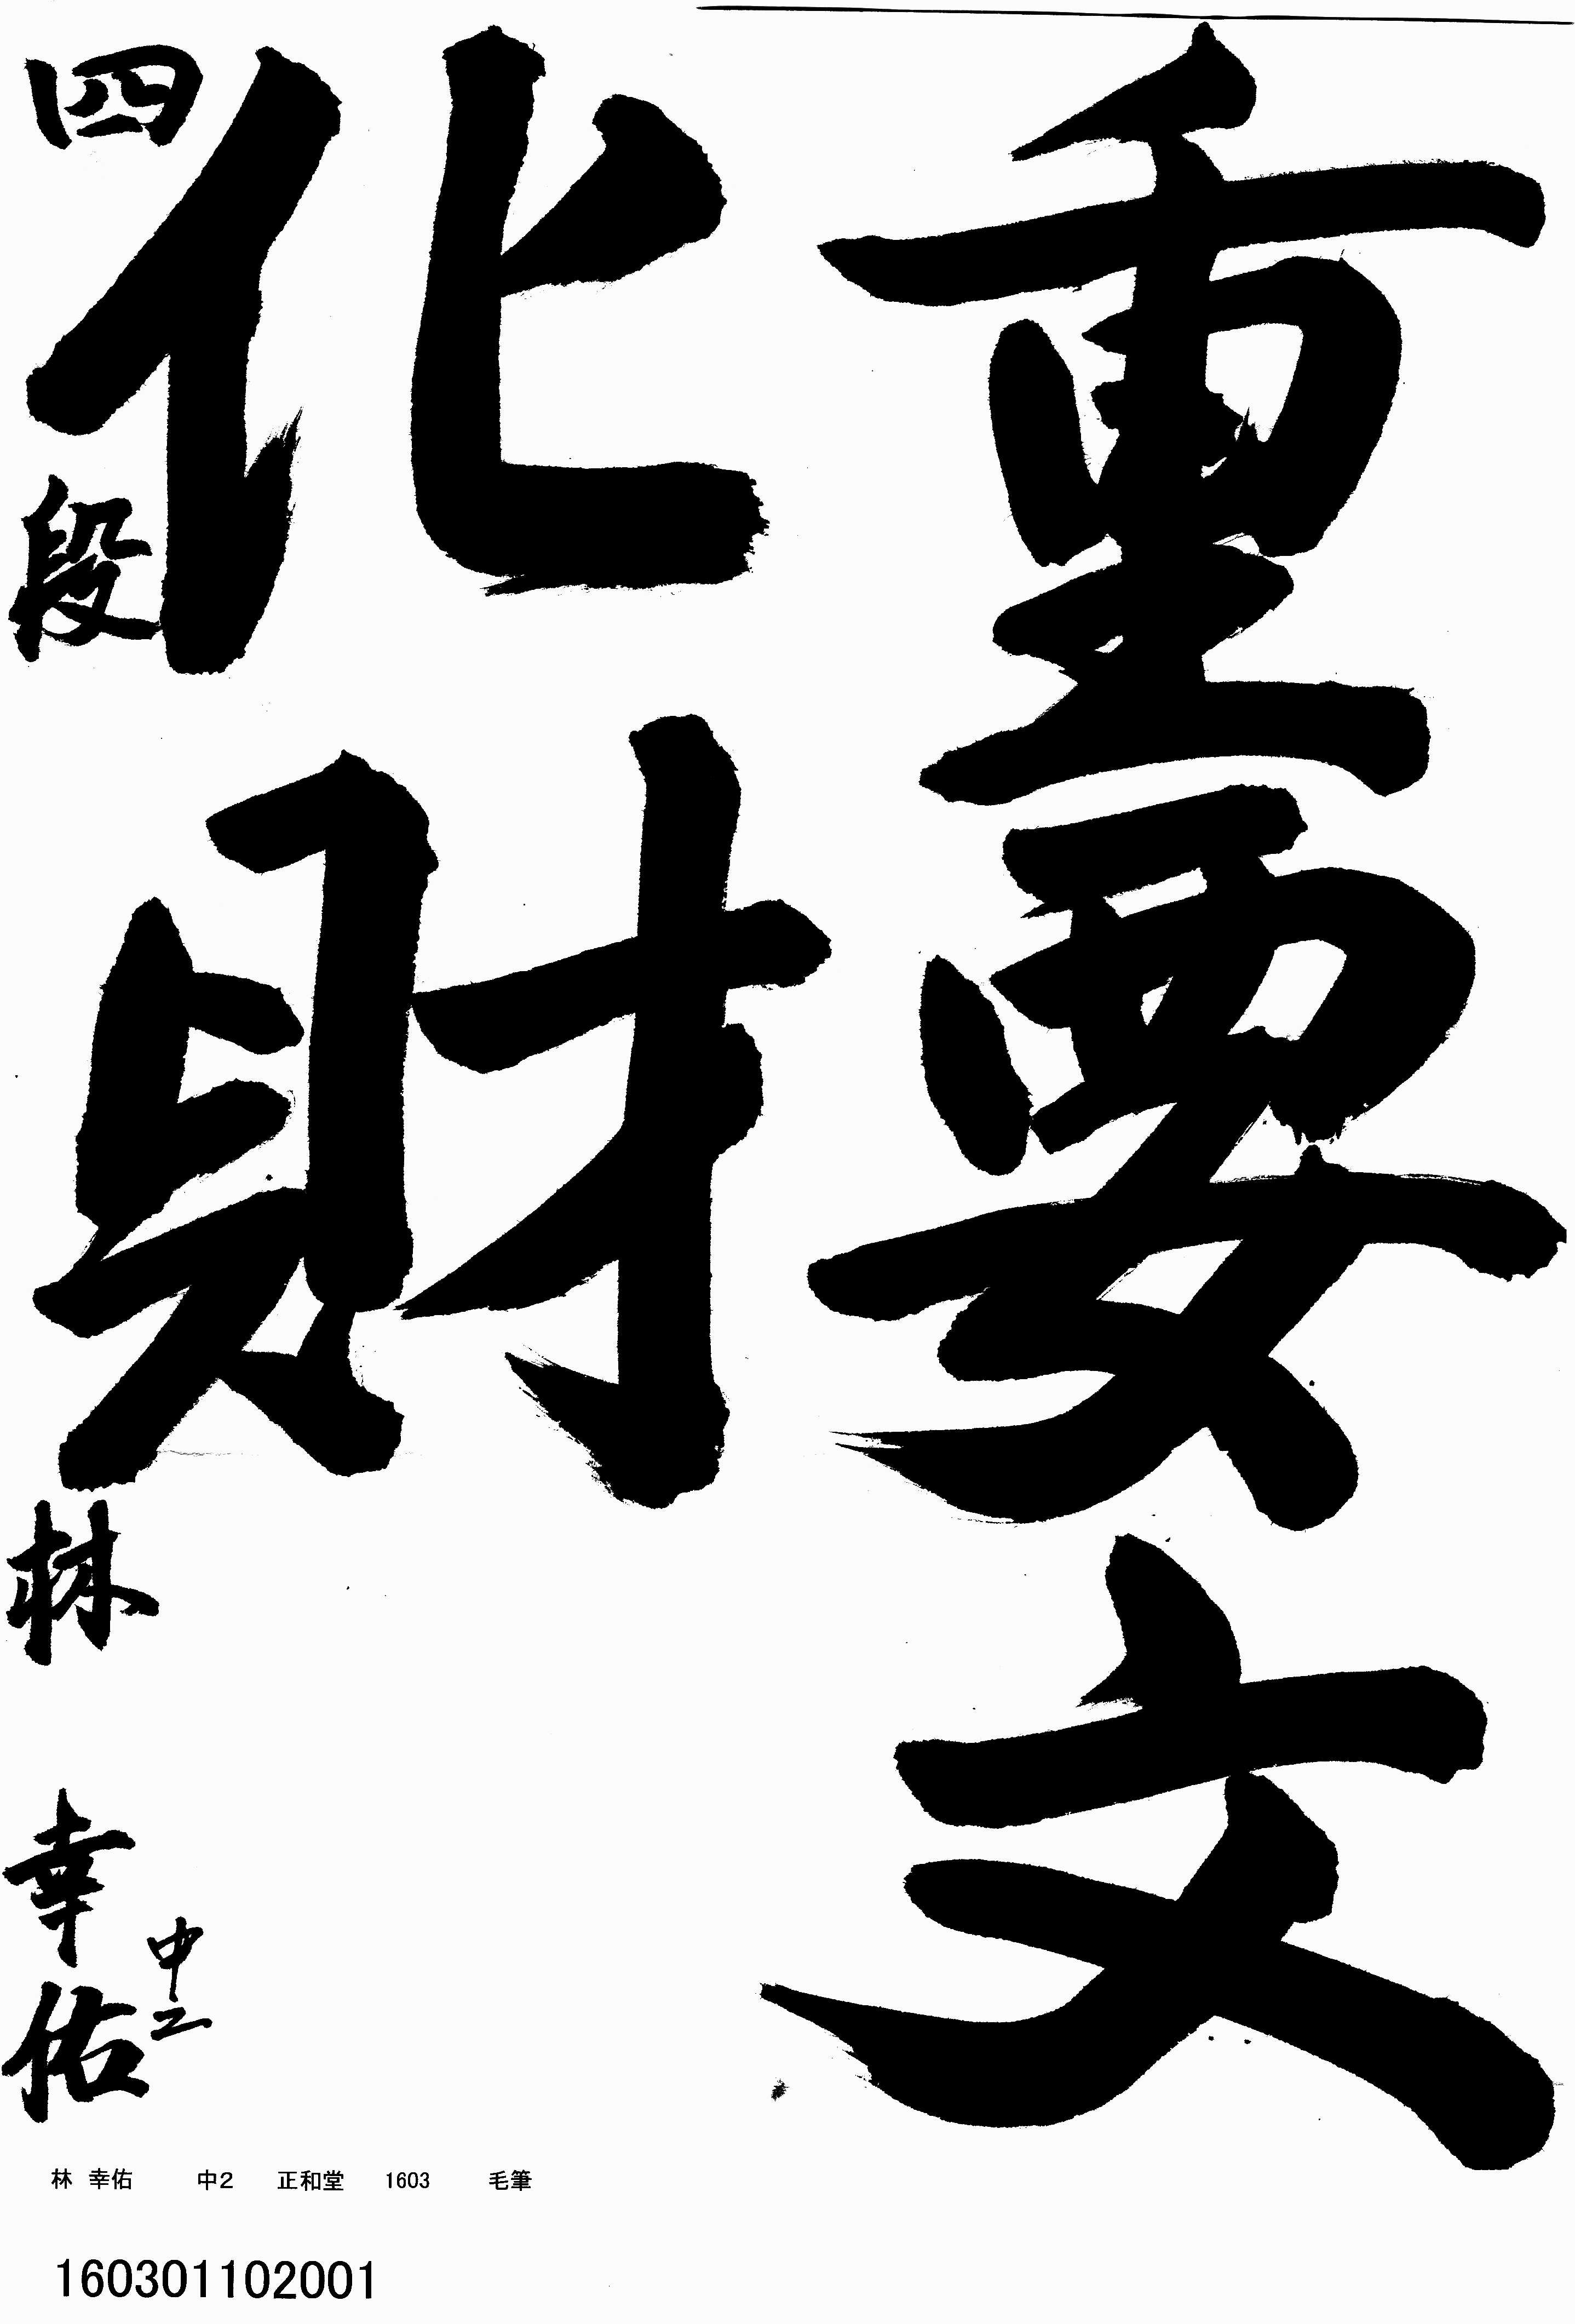 重要文
化財
四段 林 幸佑
中二
林 幸佑 中2 正和堂 1603 毛筆
160301102001